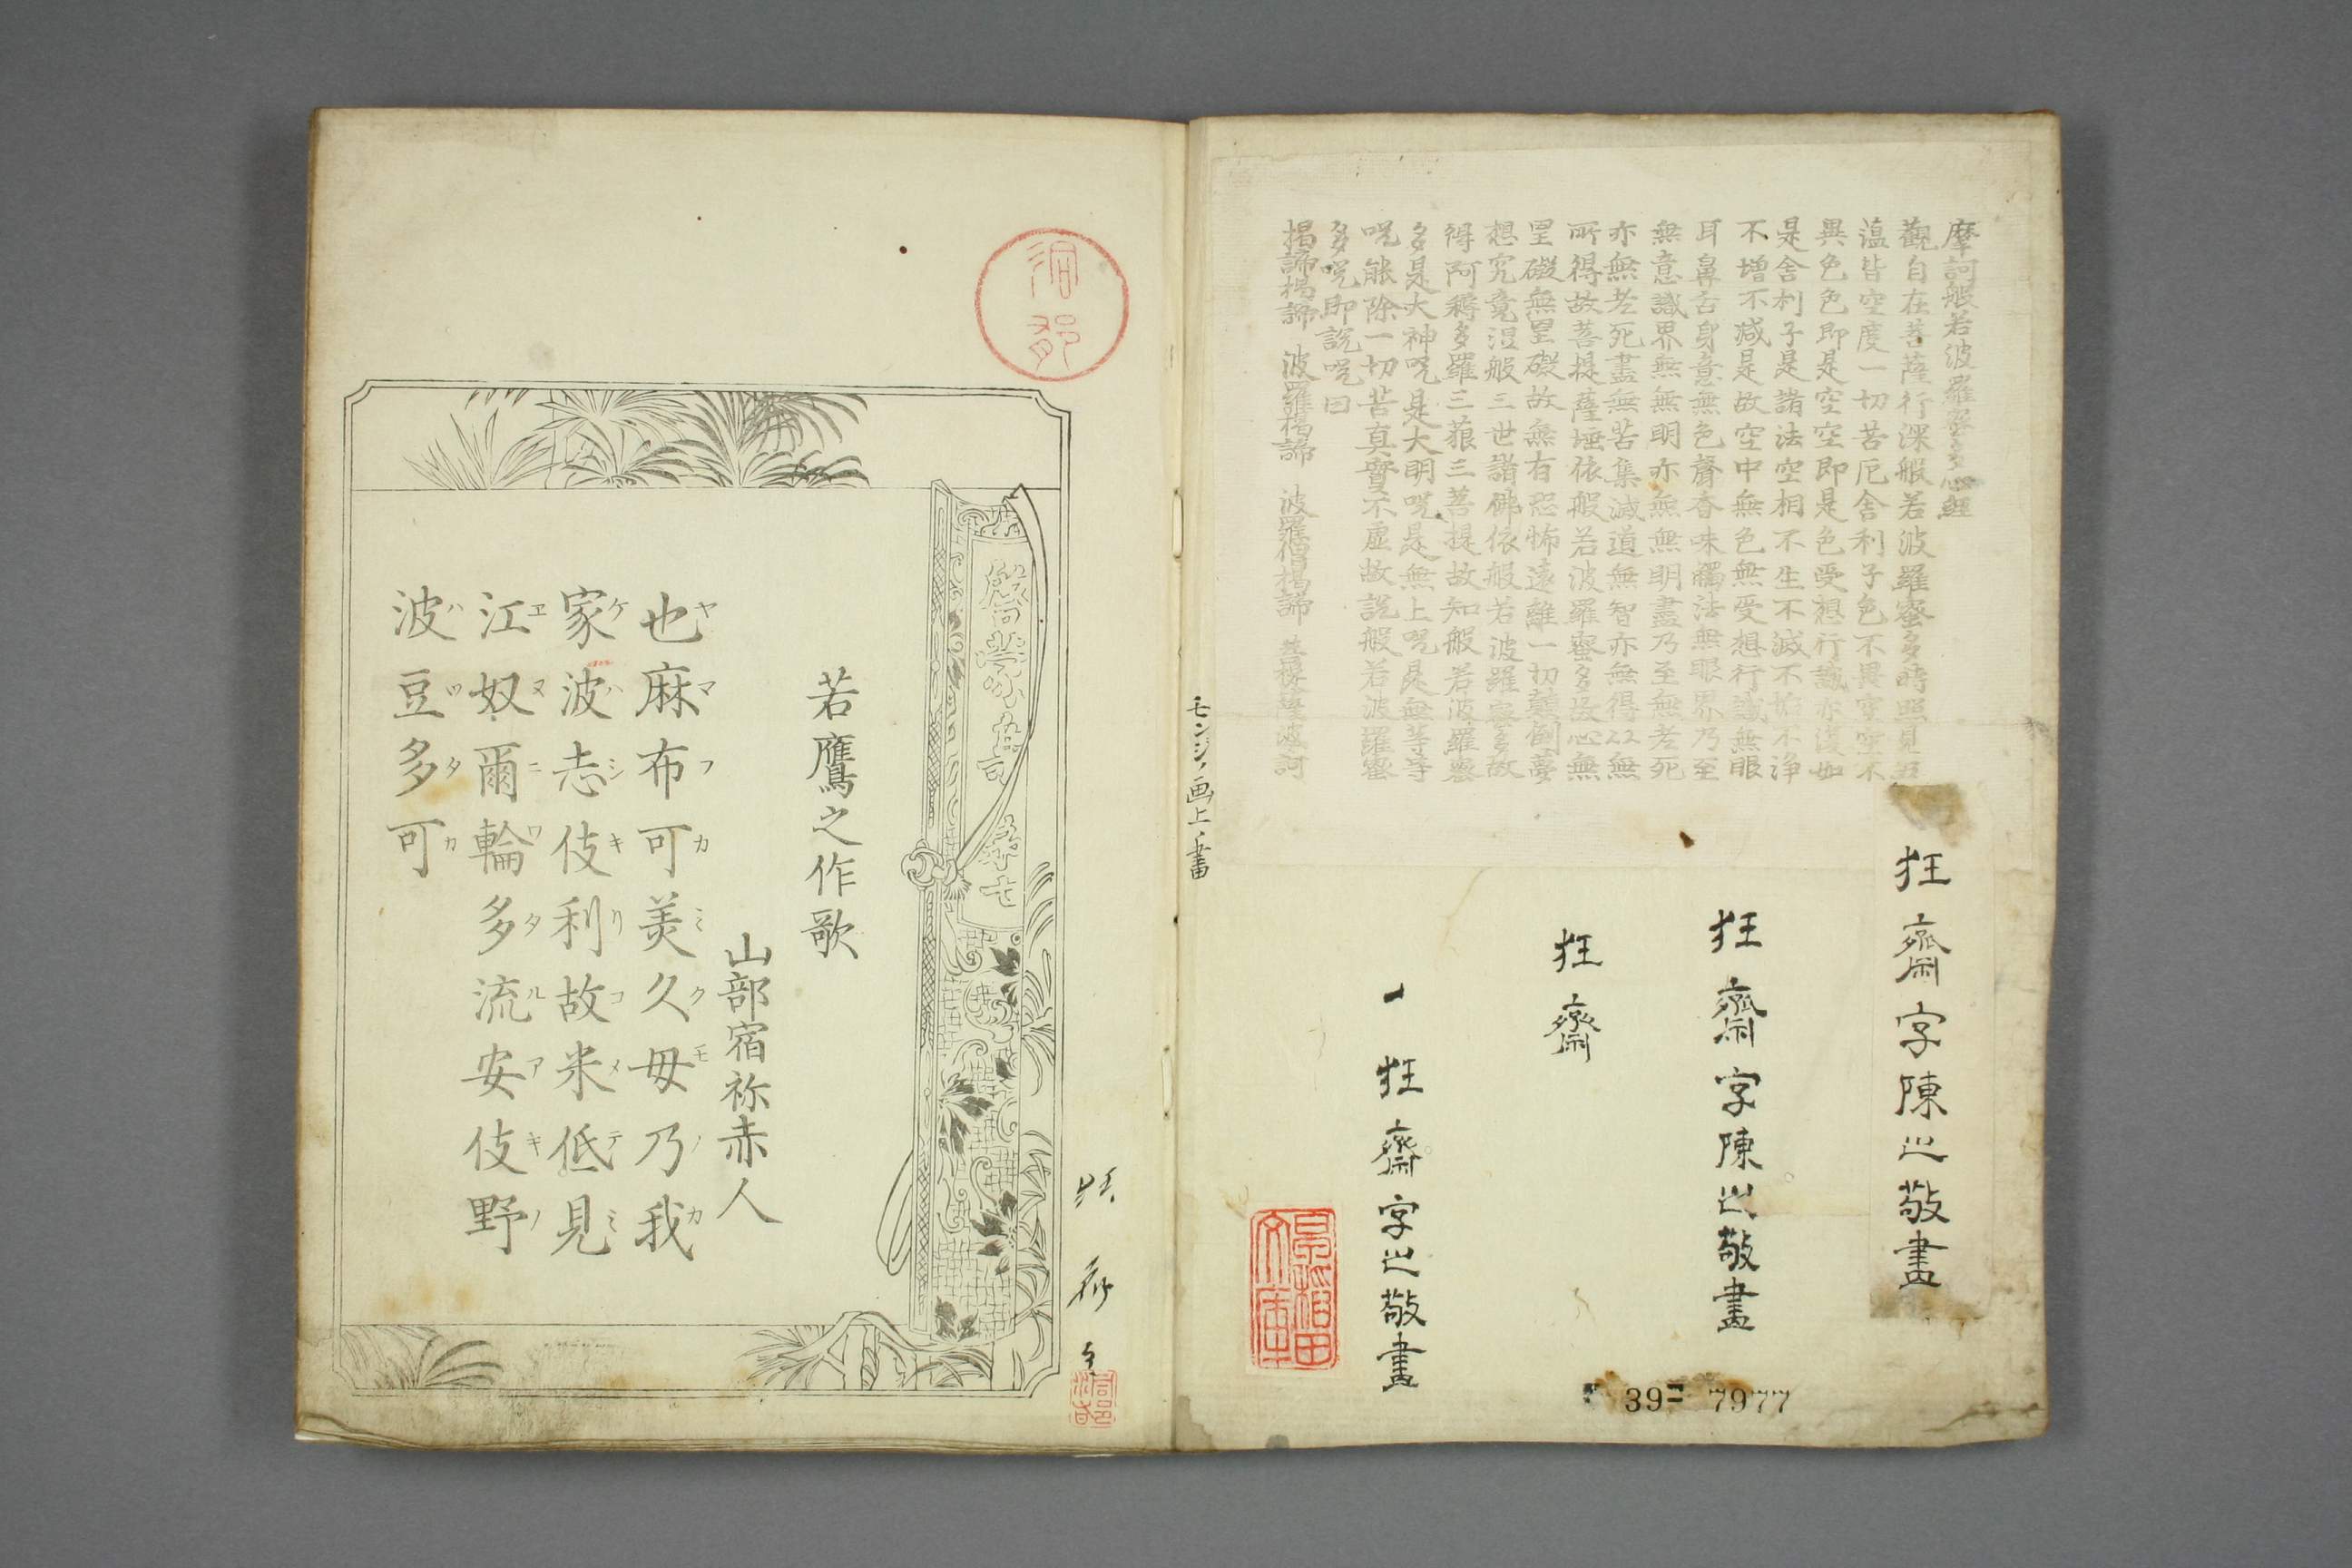 摩訶般若波羅蜜多心経
觀自在菩薩行深般若波羅蜜多時照見五
蘊皆空度一切苦厄舍利子色不異空空不
異色色即是空空即是色受想行識亦復如
是舍利子是諸法空相不生不滅不垢不淨
不增不減是故空中無色無受想行識無眼
耳鼻舌身意無色聲香味觸法無眼界乃至
無意識界無無明亦無無明盡乃至無老死
亦無老死盡無苦集滅道無智亦無得以無
所得故菩提薩埵依般若波羅蜜多故心無
罣礙無罣礙故無有恐怖遠離一切顛倒夢
想究竟涅般三世諸佛依般若波羅蜜多故
得阿耨多羅三藐三菩提故知般若波羅蜜
多是大神呪是大明呪是無上呪是無等等
呪能除一切苦真實不虛故説般若波羅蜜
多呪即説呪曰
揭諦揭諦 波羅揭諦 波羅僧揭諦 菩提薩婆訶
狂齋字陳之敬畫
狂齋字陳之敬畫
狂齋
狂齋字之敬畫
39 7977
モンジノ画上ノ書
若鷹之作歌
山部宿祢赤人
也麻布可美久毋乃我
ヤマフカミクモノカ
家波志伎利故米低見
ケハシキリコメテミ
江奴爾輪多流安伎野
ヱヌニワタルアキノ
波豆多可
ハツタカ